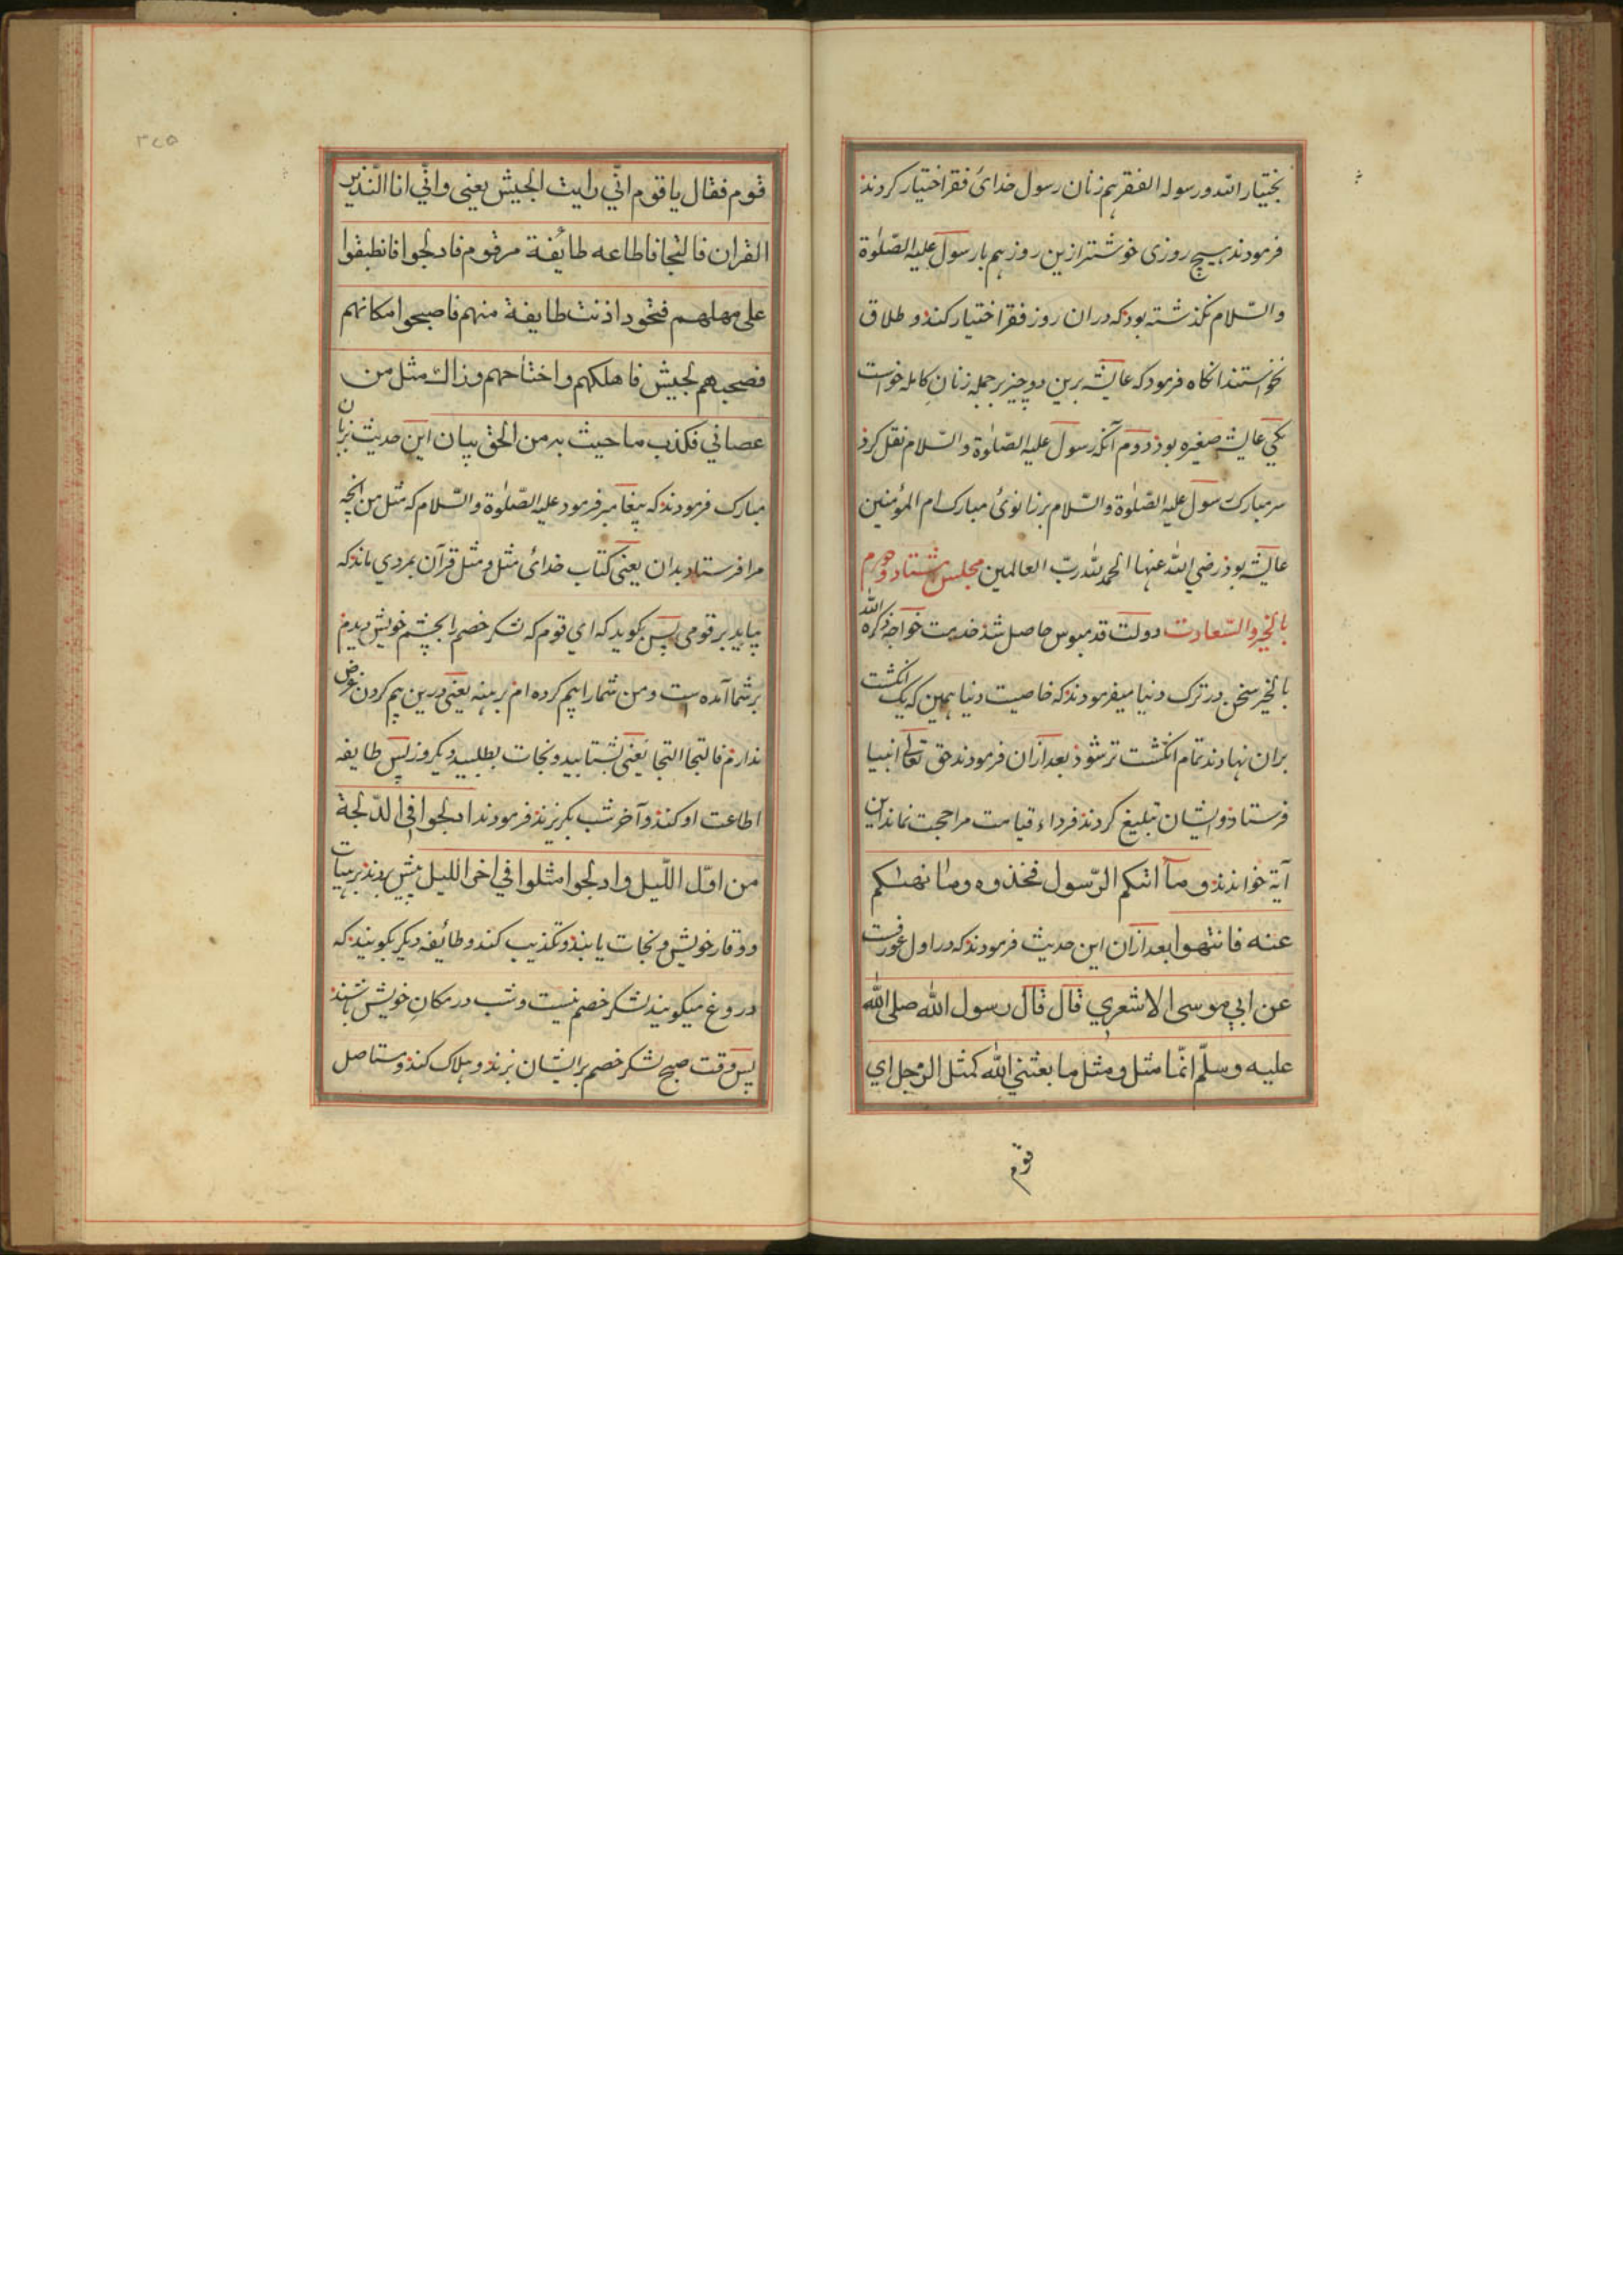 بختیار الله ورسوله الفقر هم زنان رسول خدائ فقر اختیار کردند
فرمودند هیچ روزی خوشتر ازین روز هم بار رسول علیه الصّلوٰة
والسّلام نگذشته بود که دران روز فقر اختیار کنند و طلاق
نخواستند انکاه فرمود که عایشه برین دو چیز بر جمله زنان کامله خواست
یکی عایشه صغیره بوذ دوم آنکه رسول علیه الصّلوٰة والسّلام نقل کرد
سر مبارک رسول علیه الصّلوٰة والسّلام بر زانوئ مبارک ام المؤمنین
عایشه بوذ رضی الله عنها الحمد لله ربّ العالمین مجلس هشتاد و
بالخیر والسّعادت دولت قدمبوس حاصل شذ خدمت خواجه ذکره الله
بالخیر سخن در ترک دنیا میفرمودند که خاصیت دنیا همین که یک انکشت
بران نهادند تمام انکشت تر شوذ بعد ازان فرمودند حق تعالی انبیا
فرستاذ و ایشان تبلیغ کردند فرداء قیامت مرا حجت نماند این
آیة خواندند وما اتٰیکم الرّسول فخذوه وما نهیٰکم
عنه فانتهوا بعد ازان این حدیث فرمودند که در اول غور رفت
عن ابی موسی الاشعری قال قال رسول الله صلی الله
علیه وسلّم انّما مثلی ومثل ما بعثنی الله کمثل الرجل ای
قوم
۳۷۵
قوم فقال یا قوم انّی رایت الجیش یعنی وانّی انا النّذیر
القران فالنجا فاطاعه طائفة مر قوم فادلجوا فانطبقوا
علی مهلهم فنجود اذنت طایفة منهم فاصبحوا مکانهم
فصبحهم لجیش فاهلکهم واختاحهم وذالک مثل من
عصانی فکذب ما حیث به من الحق بیان این حدیث بزبان
مبارک فرمودند که پیغامبر فرمود علیه الصّلوٰة والسّلام که مثل من انچه
مرا فرستاد بدان یعنی کتاب خدائ مثل ومثل قرآن بمردی ماند که
بیاید بر قومی پس بکوید که ای قوم که لشکر خصم را بچشم خویش دیدم
بر شما آمده است و من شما را بیم کرده ام بر هنه یعنی درین بیم کردن غرض
ندارم فالتجا التجا یعنی بشتابید و نجات بطلبید و یکروز پس طایفه
اطاعت او کنند و آخر شب بکریزند فرمودند ادلجوا فی الدّلجة
من اوّل اللّیل وادلجوا مثلوا فی اخر اللیل پیش روند بر هیات
ووقار خویش و نجات یابند و تکذیب کنند و طائفه دیکر بکویند که
دروغ میکویند لشکر خصم نیست و شب در مکان خویش باشند
پس وقت صبح لشکر خصم بر ایشان بزند و هلاک کند و مستاصل